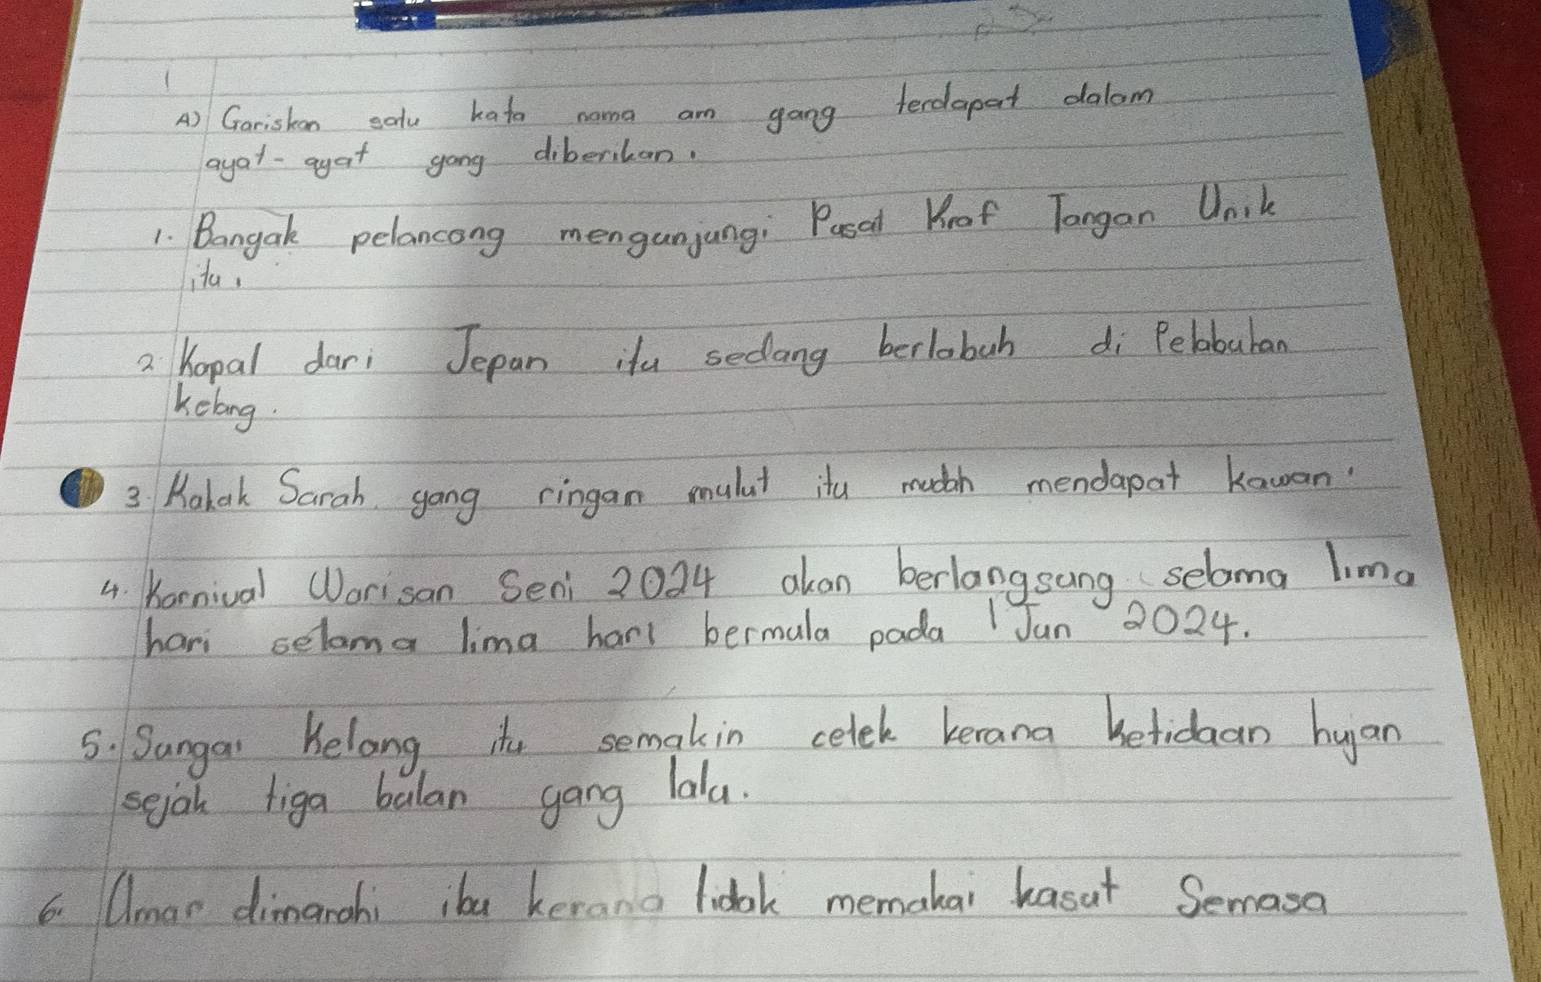 A) Gariskan satu kata nama am yang terdapat dalam
ayat-ayat yang diberikan.
1. Banyak pelancong mengunjungi Pusat Kraf Tangan Unik
itu.
2. Kapal dari Jepun itu sedang berlabuh di Pelabuhan
Kelang.
3. Kakak Sarah yang ringan mulut itu mudah mendapat kawan.
4. Karnival Warisan Seni 2024 akan berlangsung selama lima
hari selama lima hari bermula pada 1 Jun 2024.
5. Sungai Kelang itu semakin cetek kerana ketidaan hujan
sejak tiga bulan yang lalu.
6. Umar dimarahi ibu kerana tidak memakai kasut Semasa